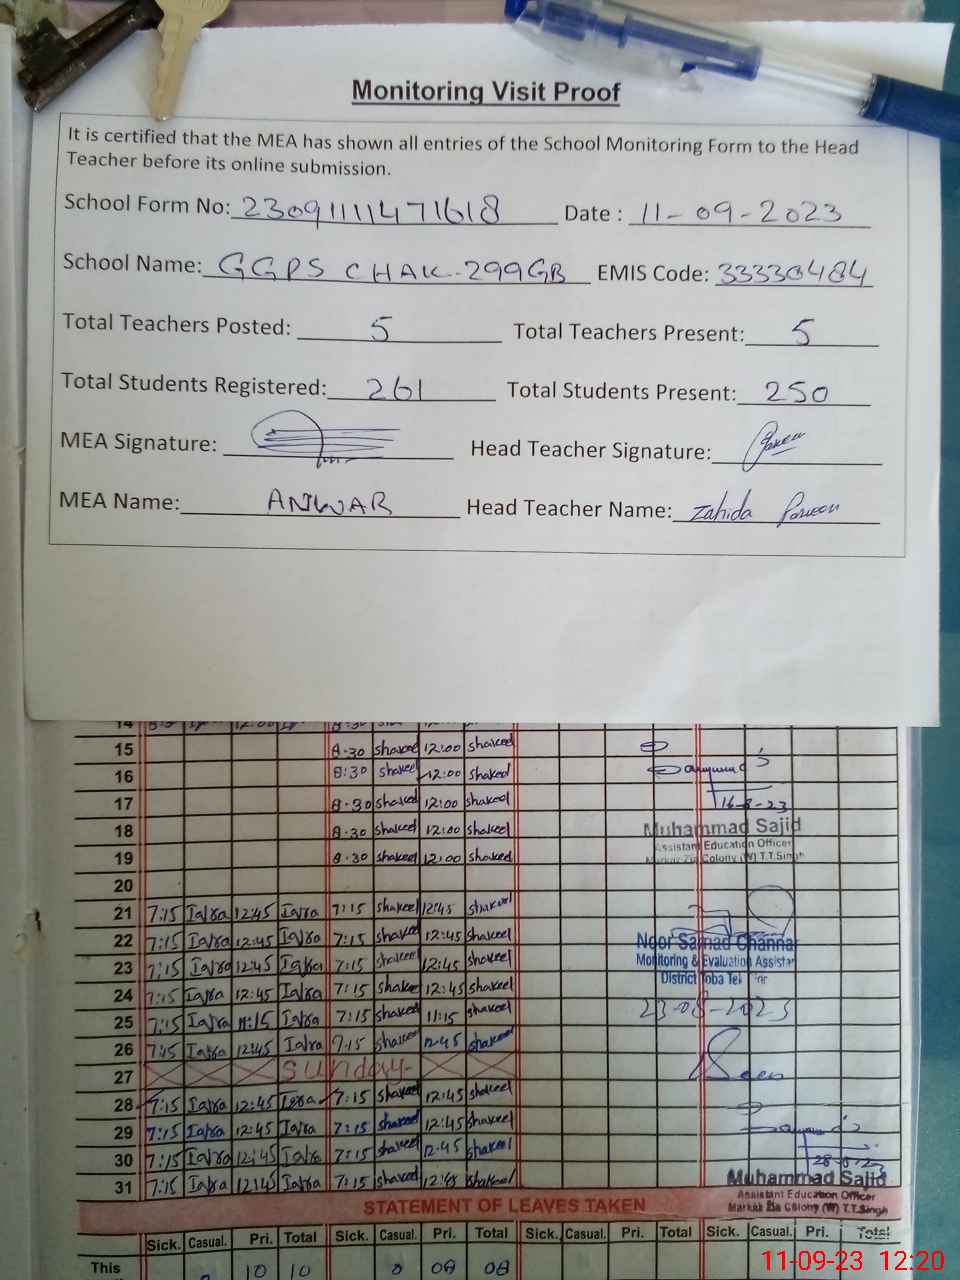 Monitoring Visit Proof
It is certified that the MEA has shown all entries of the School Monitoring Form to the Head
Teacher before its online submission.
School Form No: 23091111471618 Date : 11-09-2023
School Name: GGPS CHAK-299GB EMIS Code: 33330484
Total Teachers Posted: 5 Total Teachers Present: 5
Total Students Registered: 261 Total Students Present: 250
MEA Signature: Head Teacher Signature:
MEA Name: ANWAR Head Teacher Name: Zahida Parveen
14
15 8.30 shakeel 12:00 shakeel
16 8:30 shakeel 12:00 shakeel
17 8.30 shakeel 12:00 shakeel
16-8-23
18 8.30 shakeel 12:00 shakeel
Muhammad Sajid
Assistant Education Officer
19 8.30 shakeel 12:00 shakeel
Markaz Zia Colony (W) T.T.Singh
20
21 7:15 Iqra 12:45 Iqra 7:15 shakeel 12:45 shakeel
22 7:15 Iqra 12:45 Iqra 7:15 shakeel 12:45 shakeel
Noor Samad Channar
23 7:15 Iqra 12:45 Iqra 7:15 shakeel 12:45 shakeel
Monitoring & Evaluation Assistant
District Toba Tek
24 7:15 Iqra 12:45 Iqra 7:15 shakeel 12:45 shakeel
23-08-2023
25 7:15 Iqra 11:15 Iqra 7:15 shakeel 11:15 shakeel
26 7:15 Iqra 12:45 Iqra 7:15 shakeel 12:45 shakeel
27 Sunday
Seen
28 7:15 Iqra 12:45 Iqra 7:15 shakeel 12:45 shakeel
29 7:15 Iqra 12:45 Iqra 7:15 shakeel 12:45 shakeel
30 7:15 Iqra 12:45 Iqra 7:15 shakeel 12:45 shakeel
28-8-23
31 7:15 Iqra 12:45 Iqra 7:15 shakeel 12:45 shakeel
Muhammad Sajid
Assistant Education Officer
Markaz Zia Colony (W) T.T.Singh
STATEMENT OF LEAVES TAKEN
Sick. Casual. Pri. Total Sick. Casual. Pri. Total Sick. Casual. Pri. Total Sick. Casual. Pri. Total
This 10 10 0 08 08
11-09-23 12:20